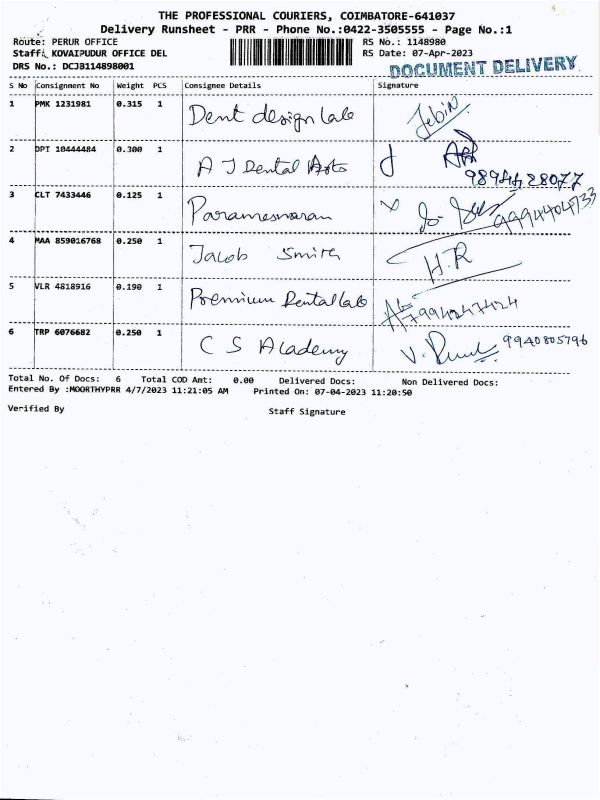 THE PROFESSIONAL COURIERS, COIMBATORE-641037
Delivery Runsheet - PRR - Phone No.:0422-3505555 - Page No.:1
Route: PERUR OFFICE RS No.: 1148980
Staff: KOVAIPUDUR OFFICE DEL RS Date: 07-Apr-2023
DRS No.: DCJB114898001 DOCUMENT DELIVERY
S No Consignment No Weight PCS Consignee Details Signature
1 PMK 1231981 0.315 1 Dent design lab Jebin
2 DPT 10444484 0.300 1 A J Dental Arts
9894428077
3 CLT 7433446 0.125 1 Parameswaran 9994404733
4 MAA 859016768 0.250 1 Jacob Smith H.R
5 VLR 4818916 0.190 1 Premium Dental lab 7994247424
6 TRP 6076682 0.250 1 C S Academy 9940805796
Total No. Of Docs: 6 Total COD Amt: 0.00 Delivered Docs: Non Delivered Docs:
Entered By :MOORTHYPRR 4/7/2023 11:21:05 AM Printed On: 07-04-2023 11:20:50
Verified By Staff Signature